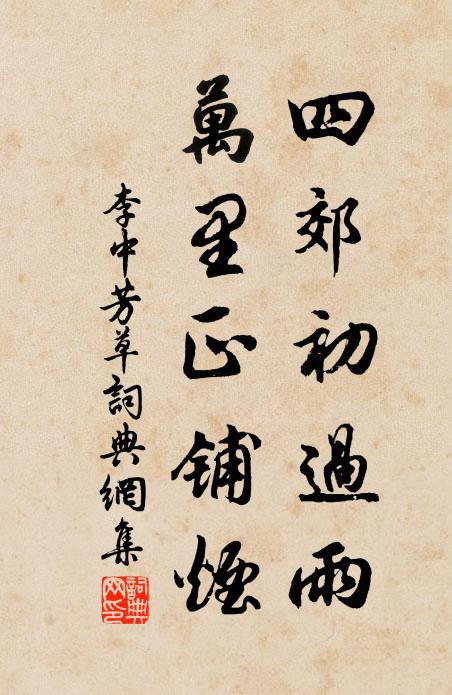 四郊初過雨
萬里正鋪煙
李中芳草詞典網集
詞典網印